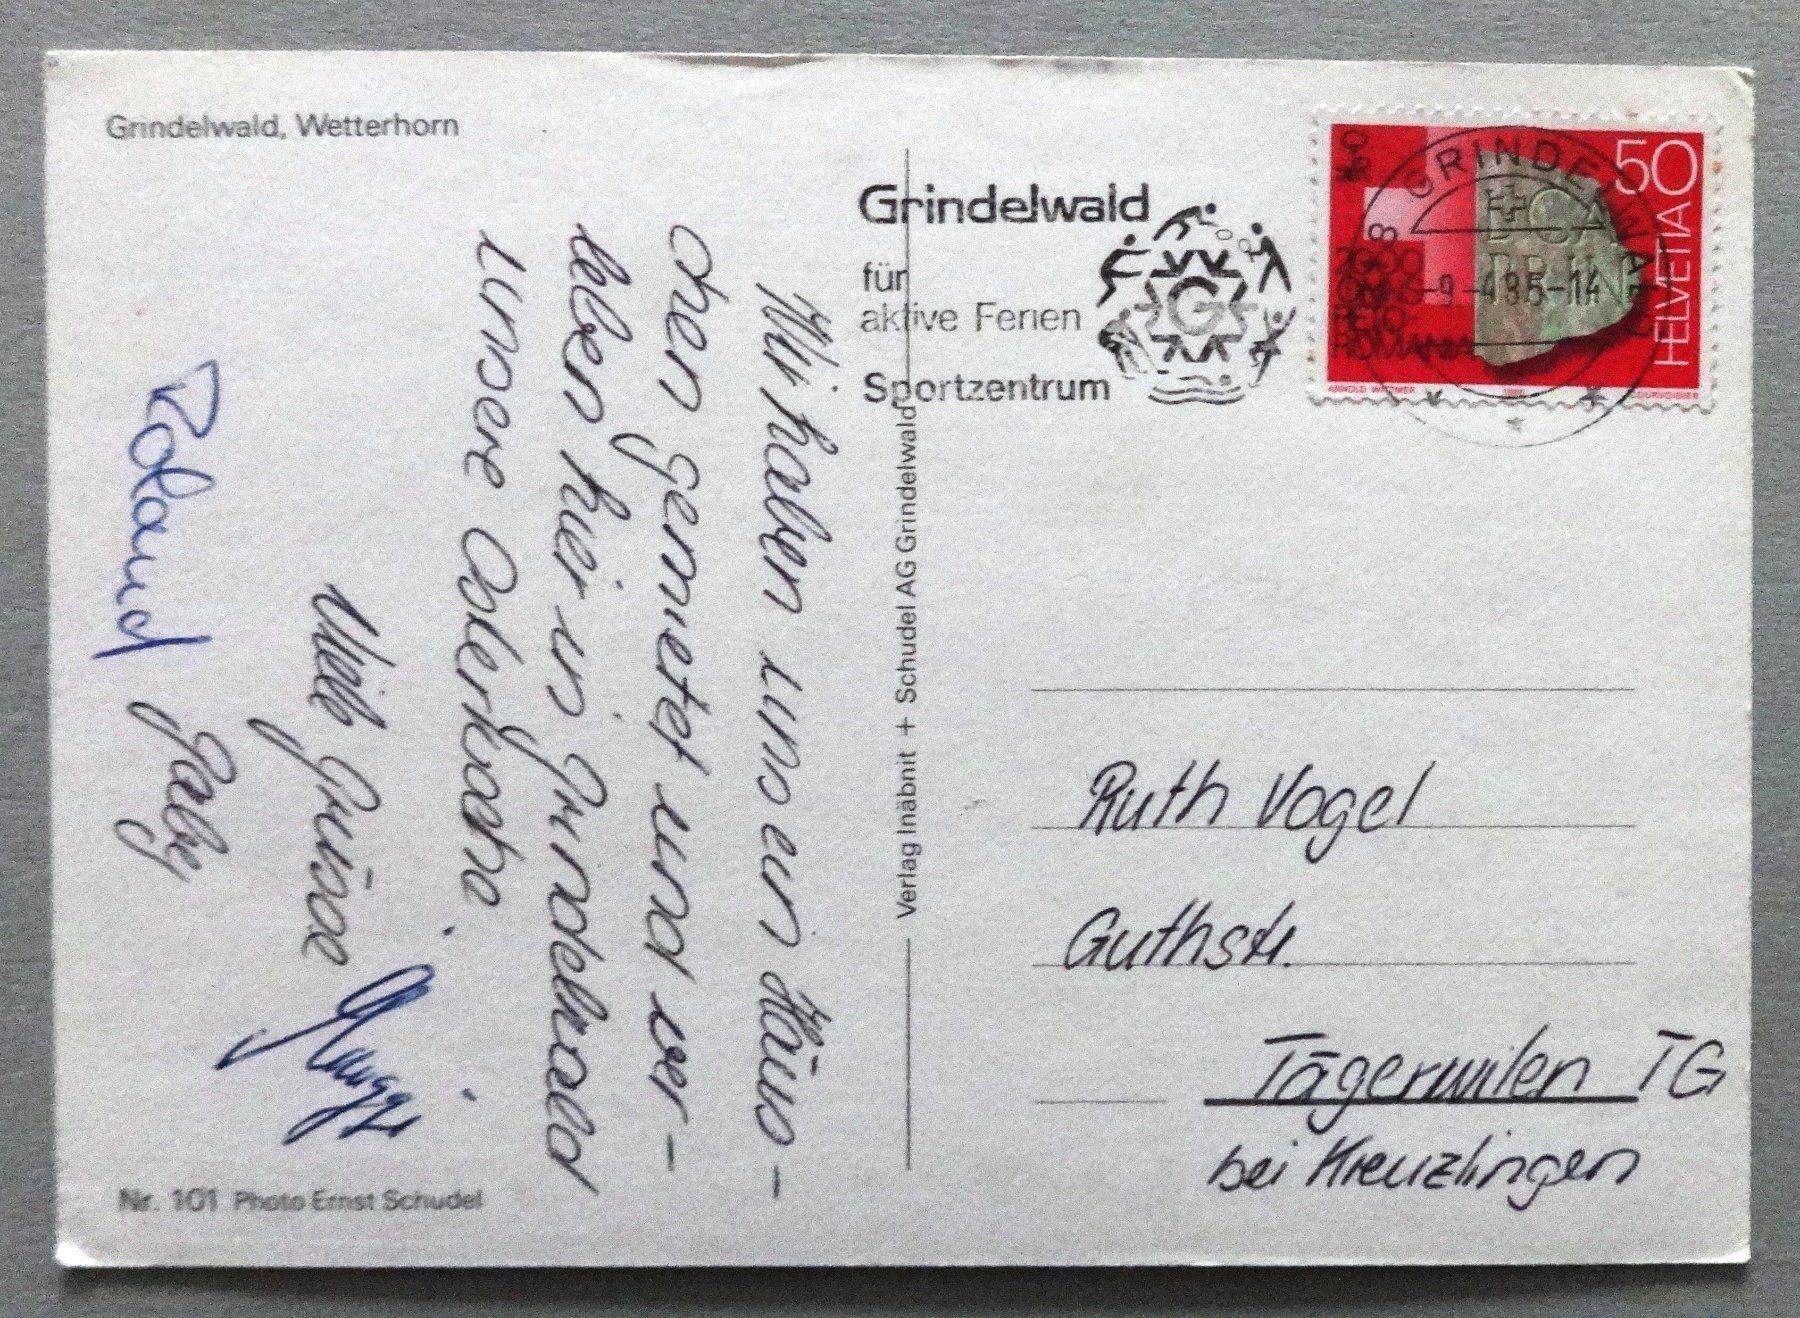 Grindelwald, Wetterhorn
Wir haben uns ein Häus-
chen gemietet und ver-
leben hier in Grindelwald
unsere Osterwoche.
Viele Grüsse
Roland Gaby
Nr. 101 Photo Ernst Schudel
Verlag Inäbnit + Schudel AG Grindelwald
Grindelwald
für
aktive Ferien
Sportzentrum
G
GRINDELWALD
-9.-485-14
50
HELVETIA
Ruth Vogel
Guthstr.
Tägerwilen TG
bei Kreuzlingen